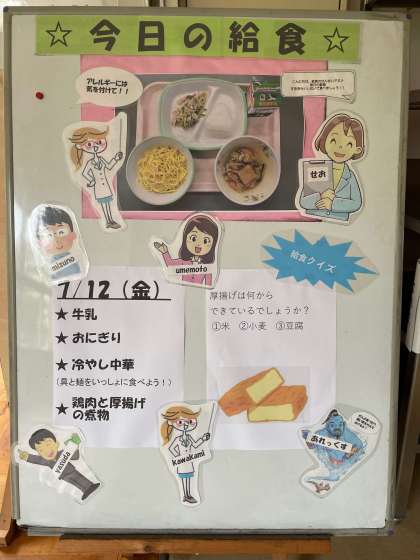 ☆今日の給食☆
アレルギーには
気を付けて！！
せお
mizuno
umemoto
給食クイズ
7/12（金）
★ 牛乳
★ おにぎり
★ 冷やし中華
（具と麺をいっしょに食べよう！）
★ 鶏肉と厚揚げ
の煮物
厚揚げは何から
できているでしょうか？
①米 ②小麦 ③豆腐
yasuda
Kawakami
あれっくす